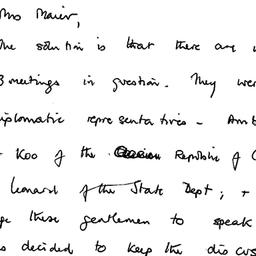 Mrs Maier,
The solution is that there are
3 meetings in question. They were
diplomatic representatives - Amb
+ Koo of the Republic of C
Leonard of the State Dept; +
these gentlemen to speak
decided to keep the discus